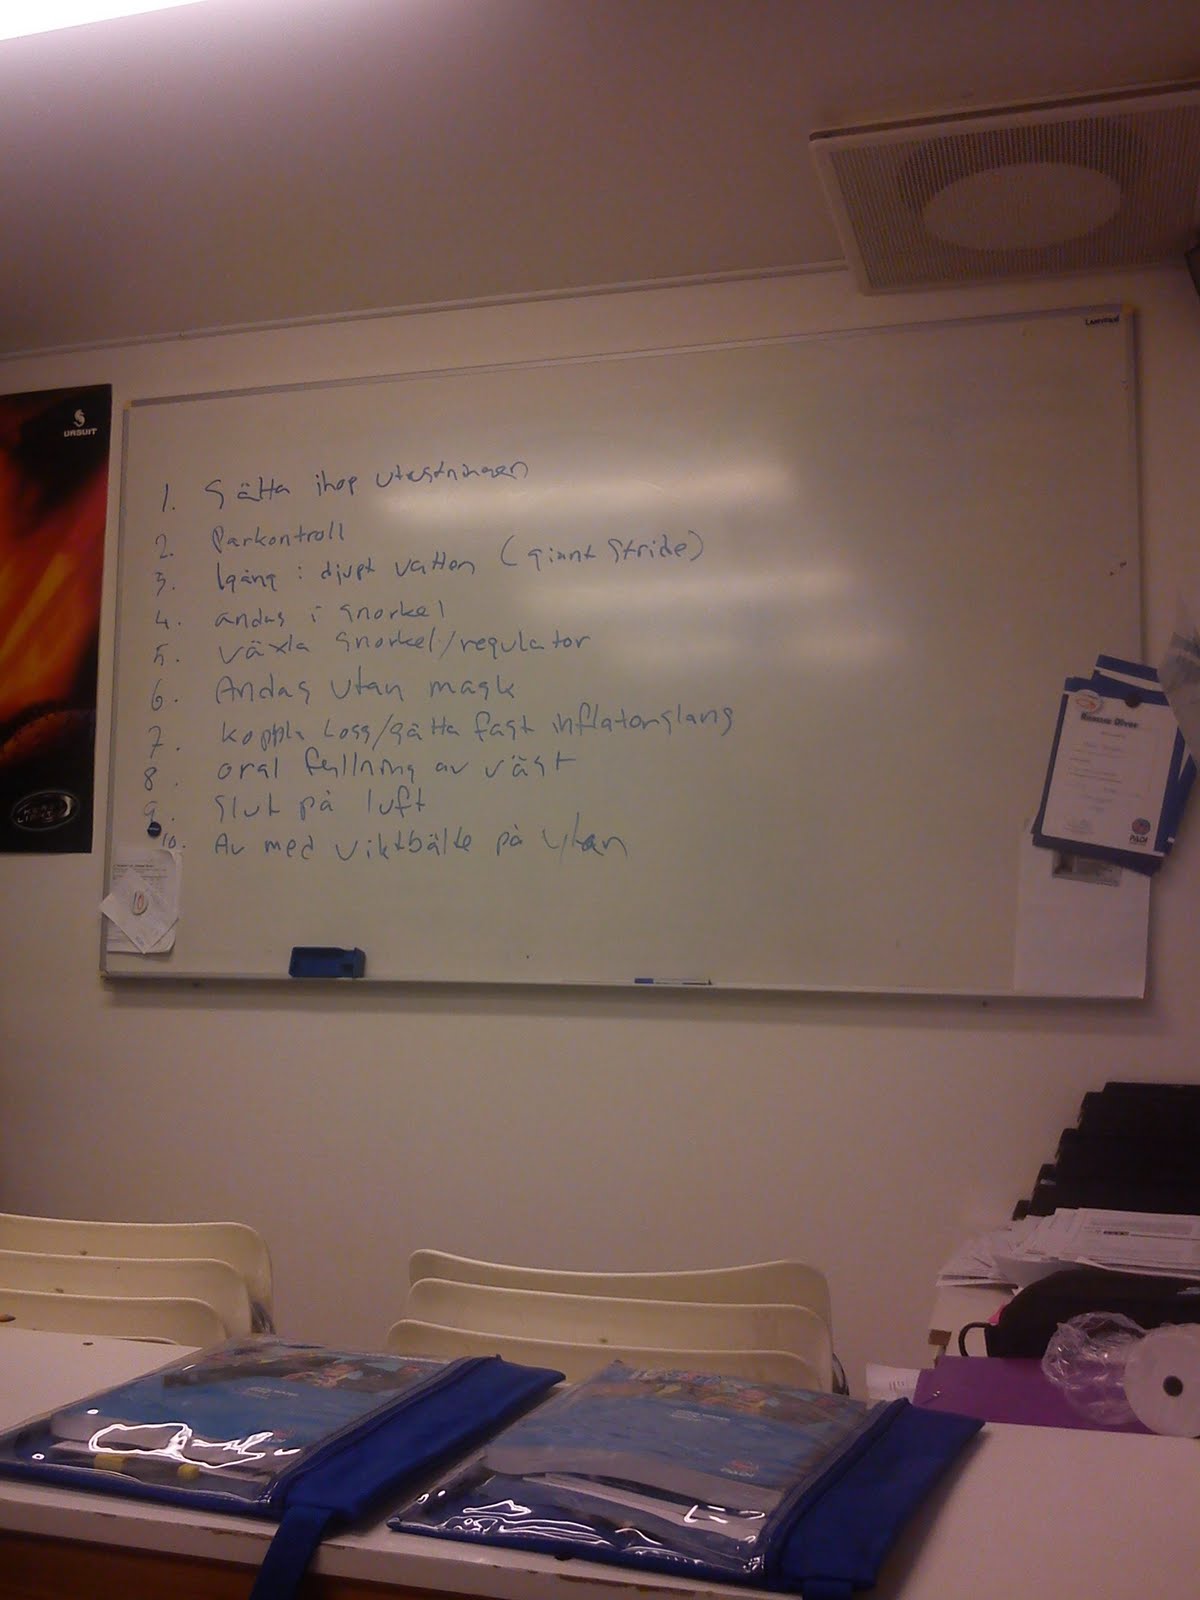 URSUIT
1. Sätta ihop utrustningen
2. Parkontroll
3. Igång i djupt vatten (giant stride)
4. andas i snorkel
5. växla snorkel/regulator
6. Andas utan mask
7. koppla Loss/sätta fast inflatorslang
8. oral fyllning av väst
9. slut på luft
10. Av med viktbälte på ytan
10
Rescue Diver
PADI
PADI